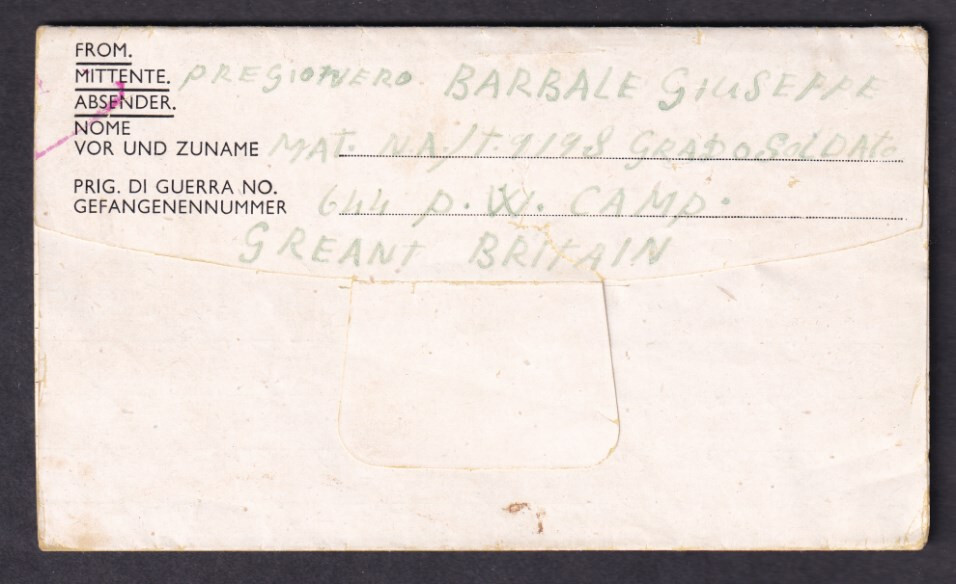 FROM.
MITTENTE. PREGIONERO BARBALE GIUSEPPE
ABSENDER.
NOME
VOR UND ZUNAME MAT. N.A/T. 9198 GRADO SOLDATO
PRIG. DI GUERRA NO.
GEFANGENENNUMMER 644 P.W. CAMP.
GREANT BRITAIN